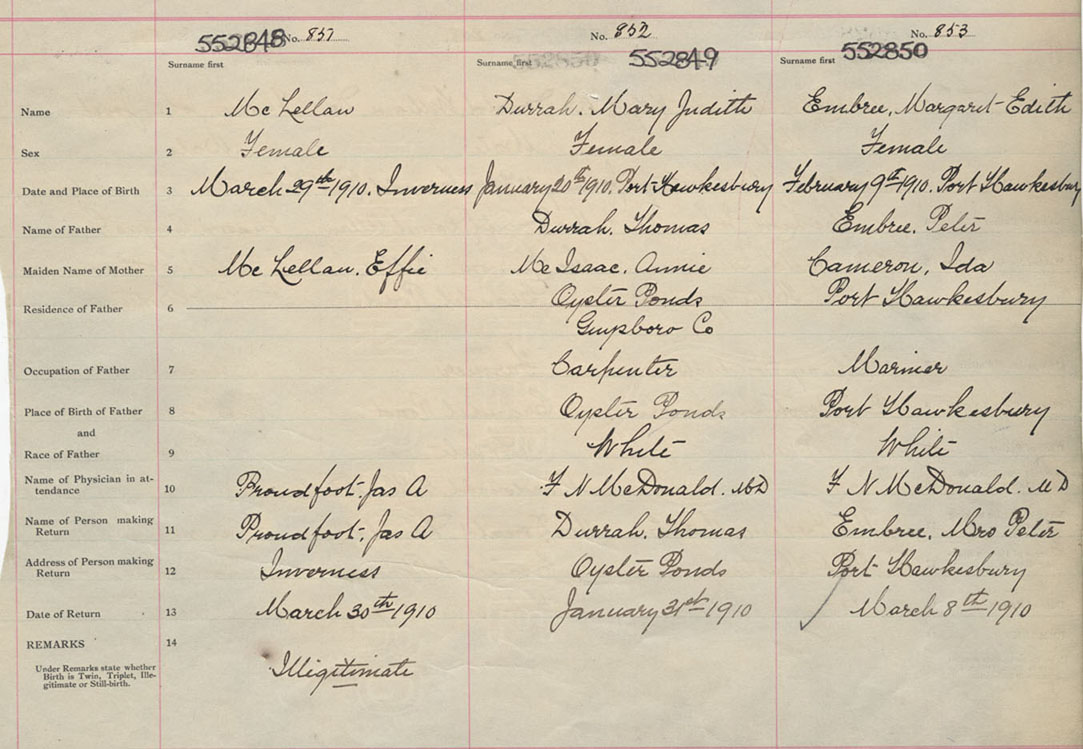 552848 No. 851
No. 852
No. 853
552849
552850
Surname first Surname first Surname first
Name 1 Mc Lellan Durrah. Mary Judith Embree, Margaret Edith
Sex 2 Female Female Female
Date and Place of Birth 3 March 29th 1910. Inverness January 20th 1910. Port Hawkesbury February 9th 1910. Port Hawkesbury
Name of Father 4 Durrah. Thomas Embree. Peter
Maiden Name of Mother 5 Mc Lellan. Effie Mc Isaac. Annie Cameron, Ida
Residence of Father 6 Oyster Ponds Port Hawkesbury
Guysboro Co
Occupation of Father 7 Carpenter Mariner
Place of Birth of Father 8 Oyster Ponds Port Hawkesbury
and
Race of Father 9 White White
Name of Physician in at-
tendance 10 Proudfoot. Jas A F N McDonald. MD F N McDonald. MD
Name of Person making
Return 11 Proudfoot, Jas A Durrah. Thomas Embree, Mrs Peter
Address of Person making
Return 12 Inverness Oyster Ponds Port Hawkesbury
Date of Return 13 March 30th 1910 January 31st 1910 March 8th 1910
REMARKS 14
Under Remarks state whether
Birth is Twin, Triplet, Ille-
gitimate or Still-birth.
Illigitimate